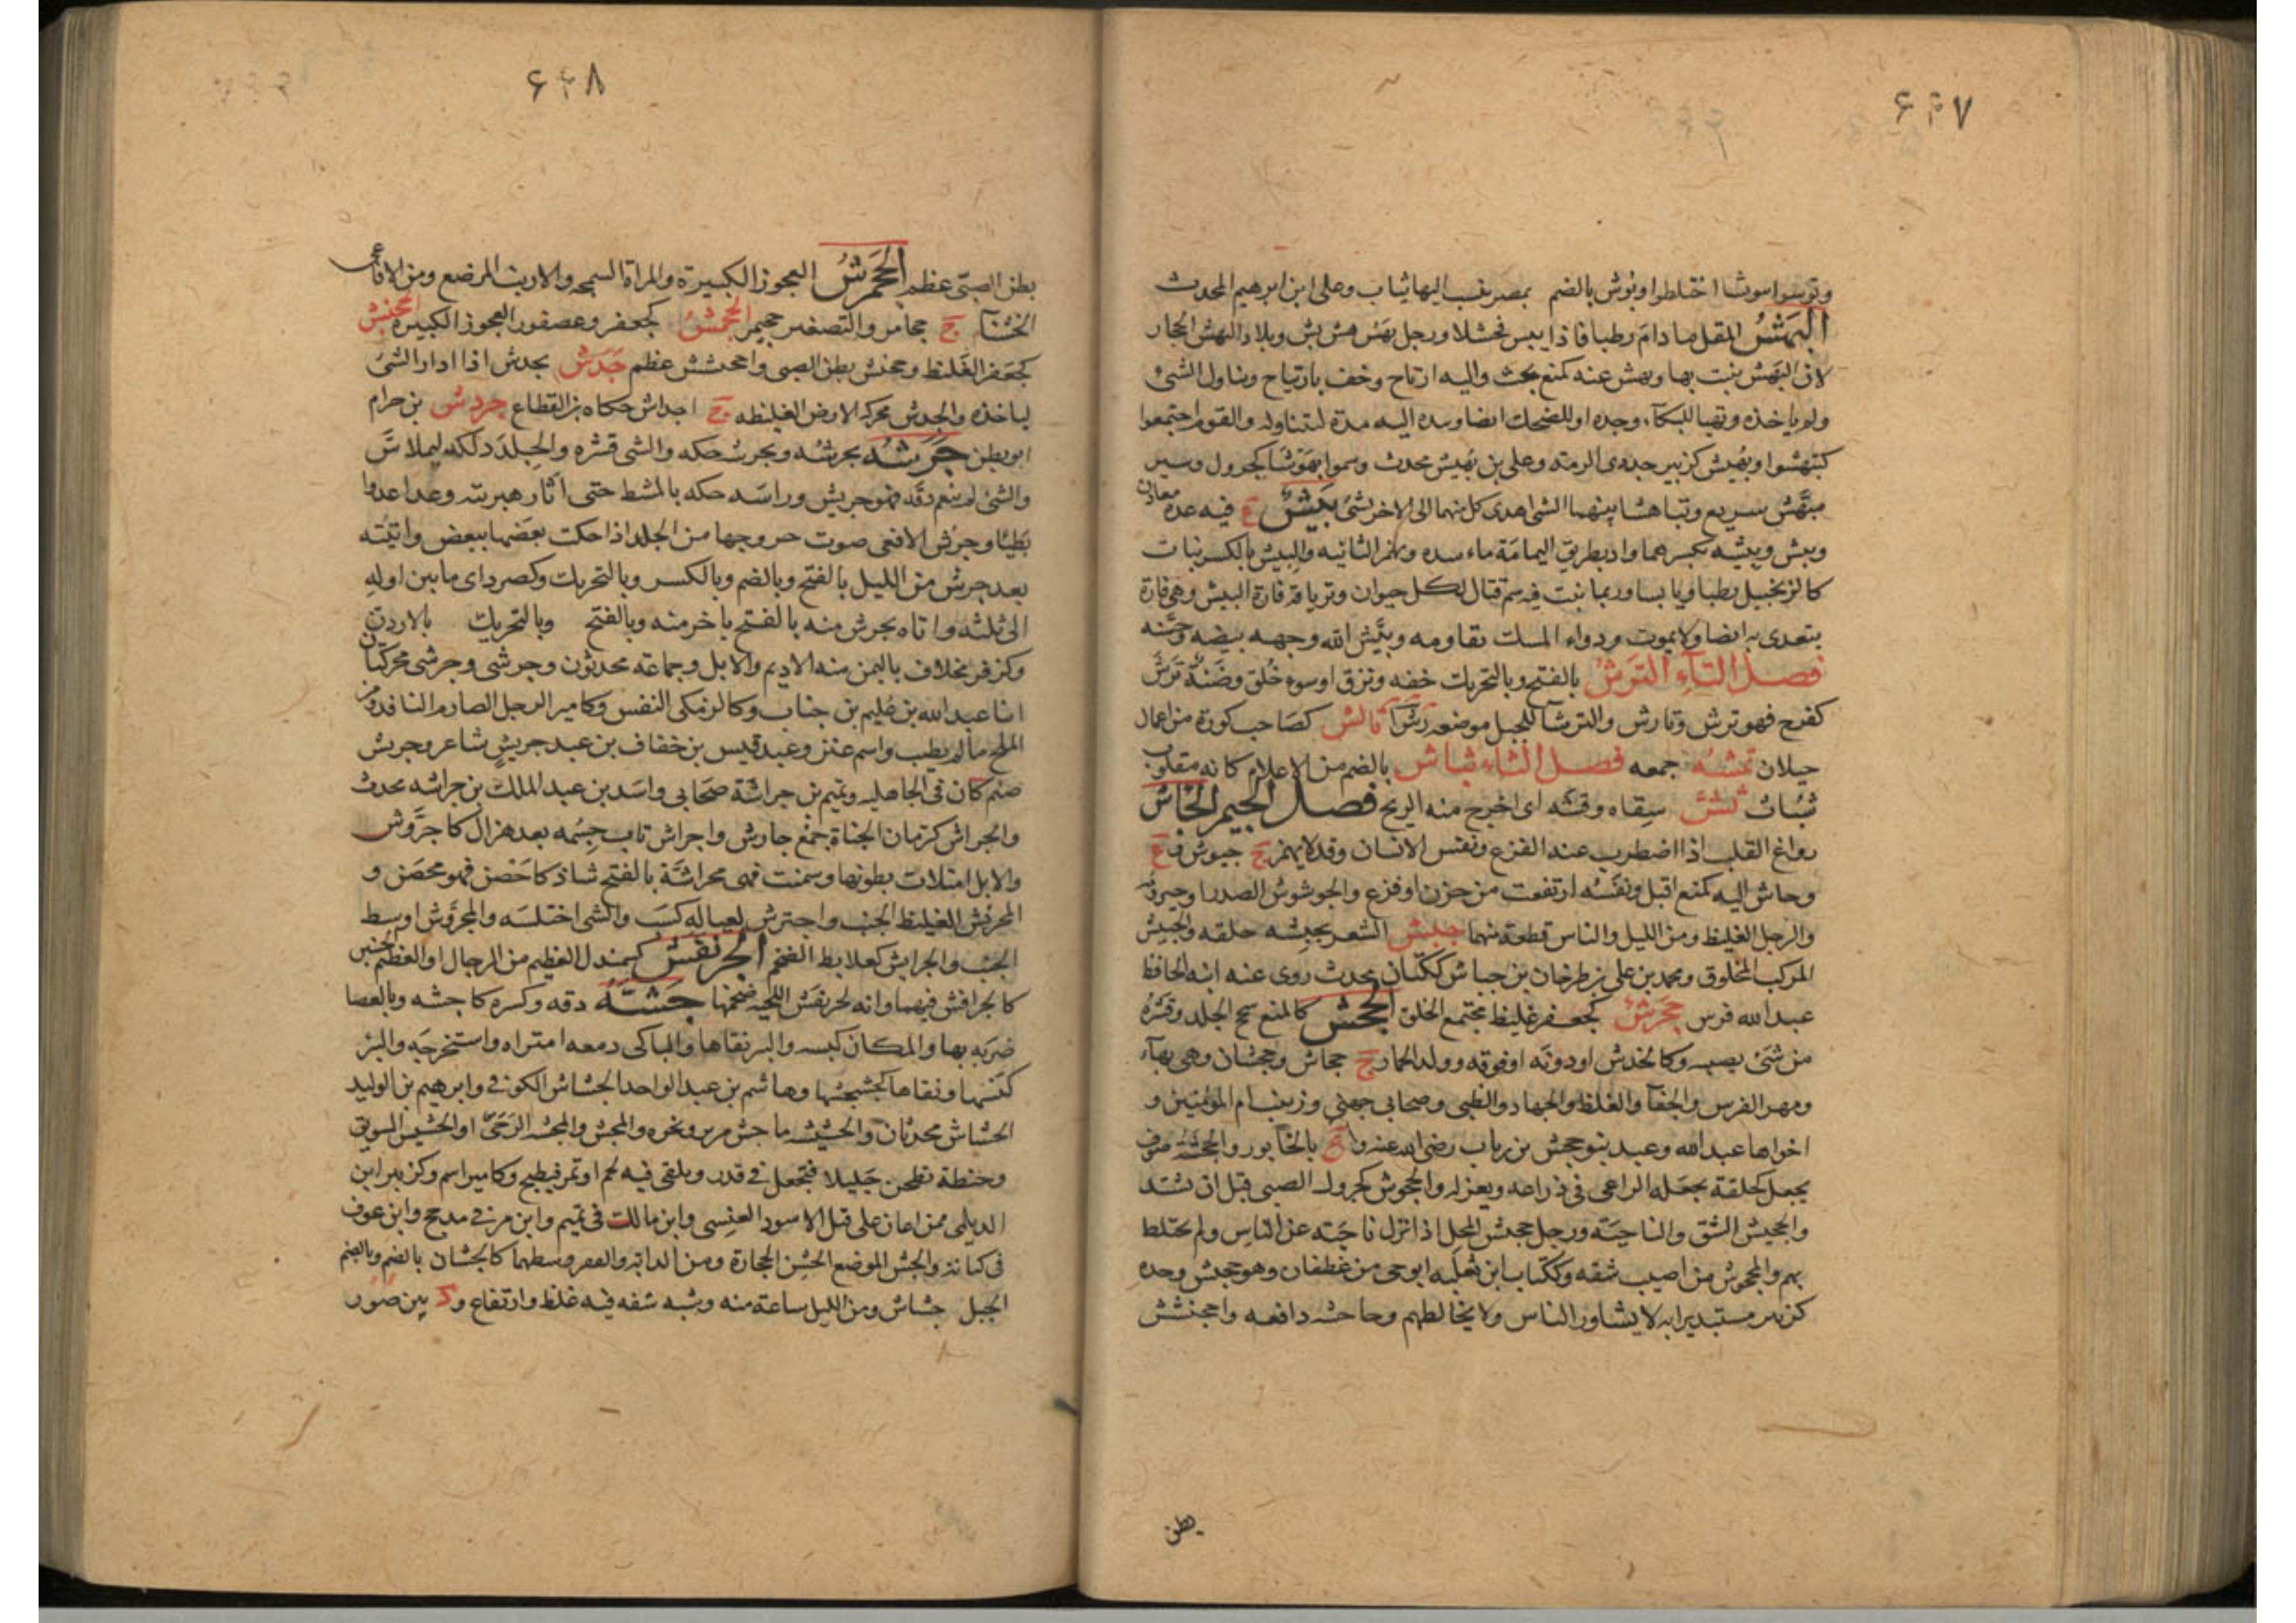 ۶۴۷
وتوبوشوا بوشا اختلطوا وبوش بالضم بمصر ينسب اليها ثياب وعلى ابن ابرهيم المحدث
البهش المقل مادام رطبا فاذا يبس فخشل ورجل بهش هش بش وبلاد البهش الحجاز
لان البهش ينبت بها وبهش عنه كمنع بحث واليه ارتاح وخف بارتياح وتناول الشئ
ولم ياخذه وتهيا للبكآء وحده او للضحك ايضا ويده اليه مدها ليتناوله والقوم اجتمعوا
كتبهشوا وبهيش كزبير جد ذى الرمة وعلى بن بهيش محدث وسموا بهوشا كجرول وسير
مبهش سريع وتباهشا بينهما الشئ اهدى كل منهما الى الاخر شئ بيش ع فيه عدة معادن
وبيش وبيشه بكسرهما واد بطريق اليمامة ماءسده وتهمز الثانيه والبيش بالكسر نبات
كالزنجبيل رطبا ويابسا وربما نبت فيه سم قتال لكل حيوان وترياقه فارة البيش وهى فارة
يتغذى به ايضا ولا يموت ودواء المسك تقاومه وبيش الله وجهه بيضه وحسنه
فصل التآء الترش بالفتح وبالتحريك خفه ونزق او سوء خلق وضنة ترش
كفرح فهو ترش وتارش والترشآ للحبل موضعه رشآ تالش كصاحب كورة من اعمال
جيلان تمشه جمعه فصل الثاء ثباش بالضم من الاعلام كانه مقلوب
شباث ثش سقاه وقشه اى اخرج منه الريح فصل الجيم الجاش
رواغ القلب اذا اضطرب عند الفزع ونفس الانسان وقد لا يهمز ج جيوش ع
وجاش اليه كمنع اقبل ونفسه ارتفعت من حزن او فزع والجوشوش الصدر او حيزومه
والرجل الغليظ ومن الليل والناس قطعة منهما جبش الشعر يجبشه حلقه والجبيش
المركب المحلوق ومحمد بن على بن طرخان بن جباش ككتان محدث روى عنه ابنه الحافظ
عبد الله فرس جحرش كجعفر غليظ مجتمع الخلق الجحش كالمنع سحج الجلد وقشره
من شئ يصيبه وكالخدش او دونه او فوقه وولد الحمار ج جحاش وجحشان وهى بهآء
ومهر الفرس والجفآ والغلظ والجهاد والظبى وصحابى جهنى وزينب ام المؤمنين و
اخواها عبد الله وعبد بنو جحش بن رياب رضى الله عنهم وة بالخابور والجحشة صوف
يجعل كحلقة يجعله الراعى فى ذراعه ويغزله والجحوش كجرول الصبى قبل ان يشتد
والجحيش الشق والناحية ورجل جحيش المحل اذا نزل ناحية عن الناس ولم يختلط
بهم والمجحوش من اصيب شقه وككتاب ابن ثعلبه ابو حى من غطفان وهو جحيش وحده
كزبير مستبد برايه لا يشاور الناس ولا يخالطهم وجاحشه دافعه واجحنشش
بطن
۶۴۸
بطن الصبى عظم الجحمرش العجوز الكبيرة والمراة السمجه والارنب المرضع ومن الافاعى
الخشنآ ج جحامر والتصغير جحيمر الجحمش كجعفر وعصفور العجوز الكبيرة الجحنش
كجعفر الغليظ وجحنش بطن الصبى واجحنشش عظم جدش يجدش اذا ادار الشئ
لياخذه والجدش محركه الارض الغليظه ج اجداش حكاه بن القطاع جردش بن حرام
ابو بطن جرشه يجرشه ويجرشه حكه والشى قشره والجلد دلكه ليملاس
والشئ لم ينعم دقه فهو جريش وراسه حكه بالمشط حتى اثار هبريته وعدا عدوا
بطيئا وجرش الافعى صوت خروجها من الجلد اذا حكت بعضها ببعض واتيته
بعد جرش من الليل بالفتح وبالضم وبالكسر وبالتحريك وكصرد اى ما بين اوله
الى ثلثه واتاه بجرش منه بالفتح باخر منه وبالفتح وبالتحريك بالاردن
وكزفر مخلاف باليمن منه الاديم والابل وجماعة محدثون وجرشى وجرشى محركتان
ابنا عبد الله بن عليم بن جناب وكالزمكى النفس وكامير الرجل الصارم النافذ ومن
الملح ما لم يطيب واسم عنز وعبد قيس بن خفاف بن عبد جريش شاعر وجريش
صنم كان فى الجاهليه وتميم بن جراشة صحابى واسد بن عبد الملك بن جراشه محدث
والجراش كرمان الجناة جمع جارش واجراش ثاب جسمه بعد هزال كاجروش
والابل امتلات بطونها وسمنت فهى مجراشة بالفتح شاذ كاحصن فهو محصن و
المجرئش الغليظ الجنب واجترش لعياله كسب والشى اختلسه والمجروش اوسط
الجنب والجرايش كعلابط الضخم الجرنفش كسمندل العظيم من الرجال او العظيم الجنبين
كالجرافش فيهما وانه لجرنفش اللحيه ضخمها جشه دقه وكسره كاجشه وبالعصا
ضربه بها والمكان كنسه والبر نقاها والباكى دمعه امتراه واستخرجه والبئر
كنسها ونقاها كجشجشها وهاشم بن عبد الواحد الجشاش الكوفى وابرهيم بن الوليد
الجشاش محدثان والجشيشه ما جش من بر ونحوه والمجش والمجشه الرحى او الجشيش السويق
وحنطة تطحن جليلا فتجعل فى قدر ويلقى فيه لحم او تمر فيطبخ وكامير اسم وكزبير ابن
الديلمى ممن اعان على قتل الاسود العنسى وابن مالك فى تميم وابن مر فى مذحج وابن عوف
فى كنانة والجش الموضع الخشن الحجارة ومن الدابة والقفر وسطهما كالجشان بالضم وبالضم
الجبل جشاش ومن الليل ساعة منه وشبه شفه فيه غلظ وارتفاع ود بين صور